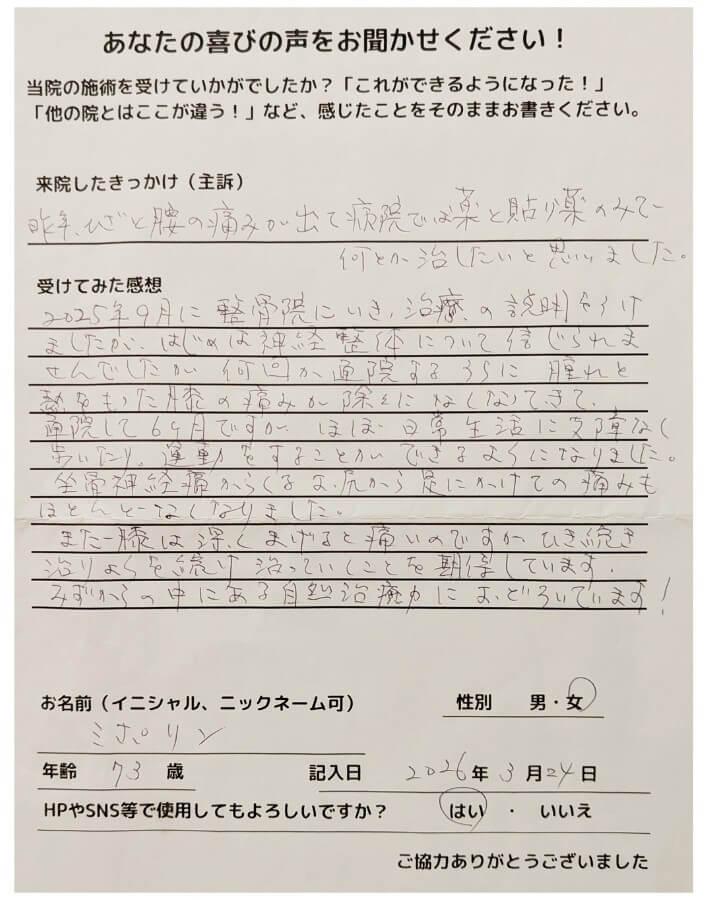 あなたの喜びの声をお聞かせください！
当院の施術を受けていかがでしたか？「これができるようになった！」
「他の院とはここが違う！」など、感じたことをそのままお書きください。
来院したきっかけ（主訴）
昨年、ひざと腰の痛みが出て病院では薬と貼り薬のみで
何とか治したいと思いました。
受けてみた感想
2025年9月に整骨院にいき、治療の説明をうけ
ましたが、はじめは神経整体について信じられま
せんでしたが 何回か通院するうちに 腫れと
熱をもった膝の痛みが除々になくなってきて、
通院して6ヶ月ですが ほぼ日常生活に支障なく
歩いたり、運動をすることができるようになりました。
坐骨神経痛からくるお尻から足にかけての痛みも
ほとんどなくなりました。
まだ膝は深くまげると痛いのですが ひき続き
治りょうを続け 治っていくことを期待しています。
みずからの中にある自然治癒力に おどろいています！
お名前（イニシャル、ニックネーム可）
性別 男・女
ミポリン
年齢 73 歳
記入日 2026年 3月24日
HPやSNS等で使用してもよろしいですか？ はい ・ いいえ
ご協力ありがとうございました